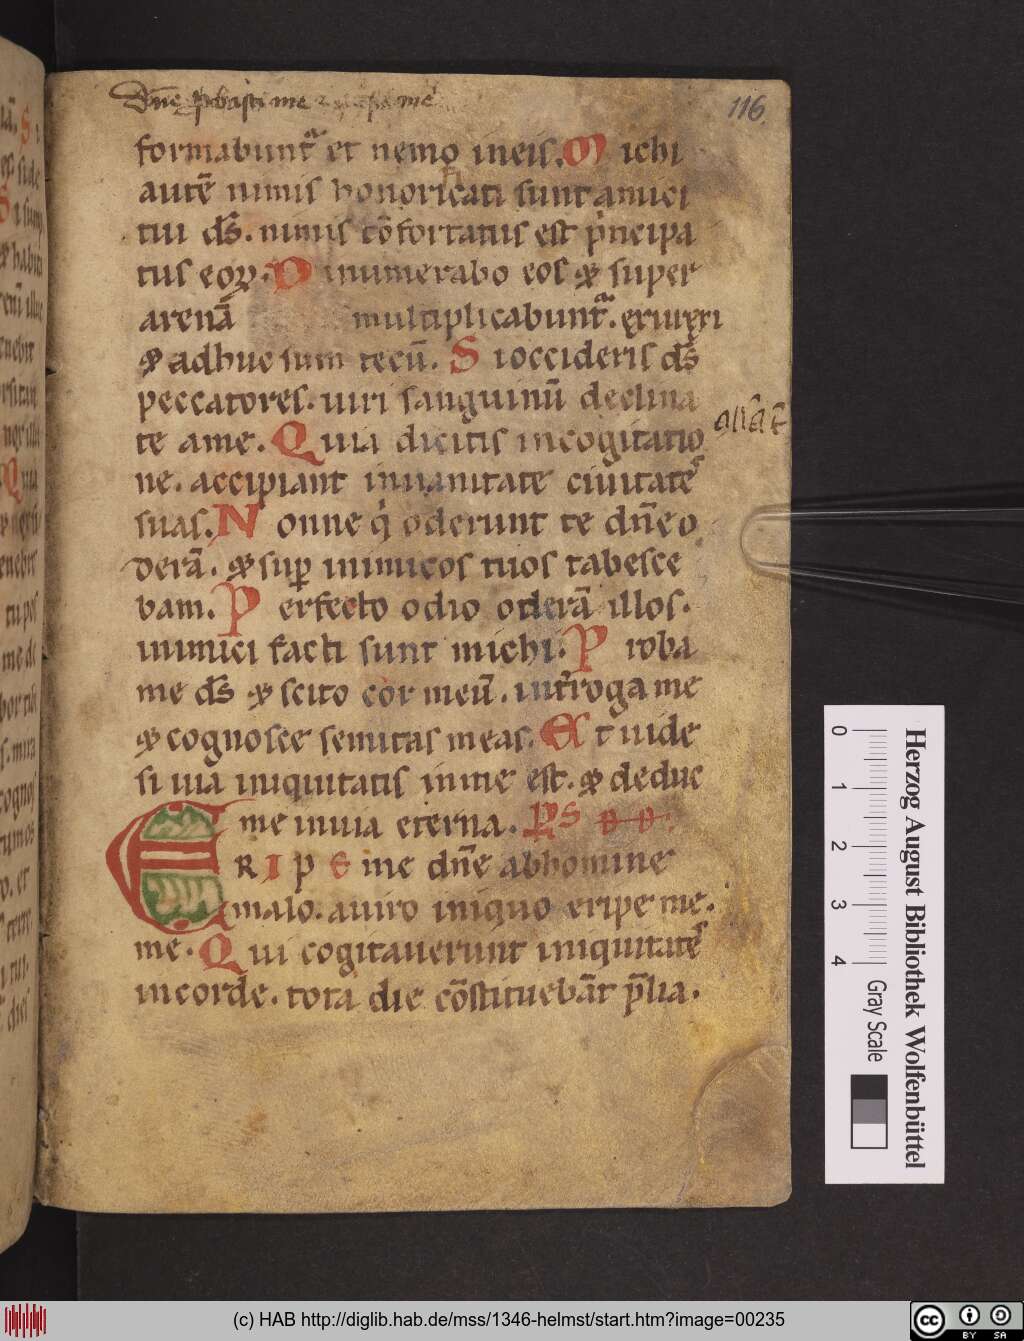 Dn̄e ꝓbasti me
116
formabunt᷑ et nemo ineis. Michi
autē nimis honoricati sunt amici
fi
tui ds̄. nimis cōfortatus est pⁱncipa
tus eoꝝ. Dinumerabo eos ⁊ super
arenā multiplicabunt᷑. exurrexi
⁊ adhuc sum tecū. Si occideris ds̄
peccatores. uiri sanguinū declina
te ame. Quia dicitis incogitatio
ne. accipiant inuanitate ciuitatē
suas. Nonne qⁱ oderunt te dn̄e o
derā. ⁊ suꝑ inimicos tuos tabesce
bam. Perfecto odio oderā illos.
inimici facti sunt michi. Proba
me ds̄ ⁊ scito cor meū. int̄roga me
⁊ cognosce semitas meas. Et uide
si uia iniquitatis inme est. ⁊ deduc
me inuia eterna. Ps DD.
ERIPE me dn̄e abhomine
malo. auiro iniquo eripe me.
me. Qui cogitauerunt iniquitatē
incorde. tota die cōstituebāt p̄lia.
0 1 2 3 4
Gray Scale
Herzog August Bibliothek Wolfenbüttel
(c) HAB http://diglib.hab.de/mss/1346-helmst/start.htm?image=00235
cc BY SA